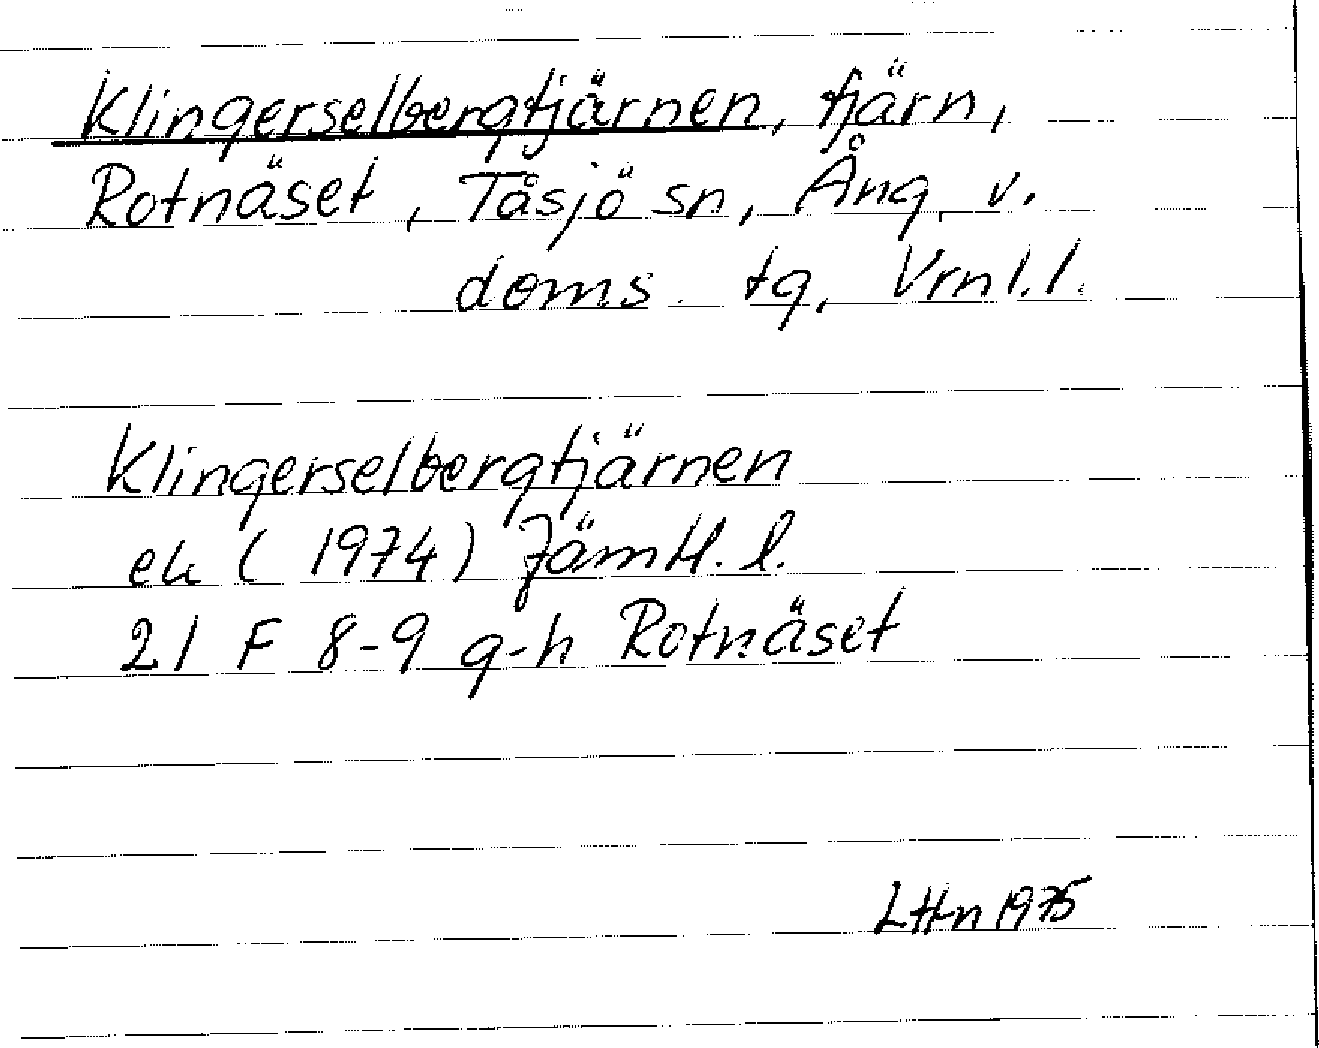 Klingerselbergtjärnen, tjärn,
Rotnäset, Tåsjö sn, Ång. v.
doms. tg, Vrnl.l.
Klingerselbergtjärnen
ek (1974) Jämtl. l.
21 F 8-9 g-h Rotnäset
LHn 1975